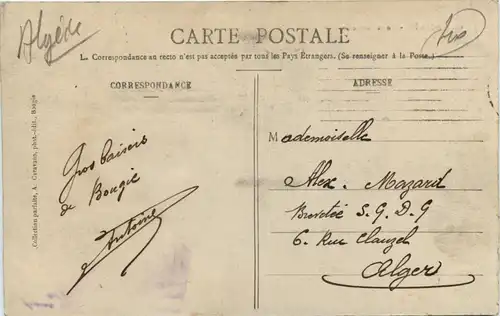 Algérie
CARTE POSTALE
L. Correspondance au recto n'est pas acceptée par tous les Pays Étrangers. (Se renseigner à la Poste.)
CORRESPONDANCE
ADRESSE
Collection parfaite, A. phot.-édit., Bougie
Gros baisers
de Bougie
Antoine
Mademoiselle
Alex. Mazard
Brevetée S. G. D. G
6. Rue Clauzel
Alger